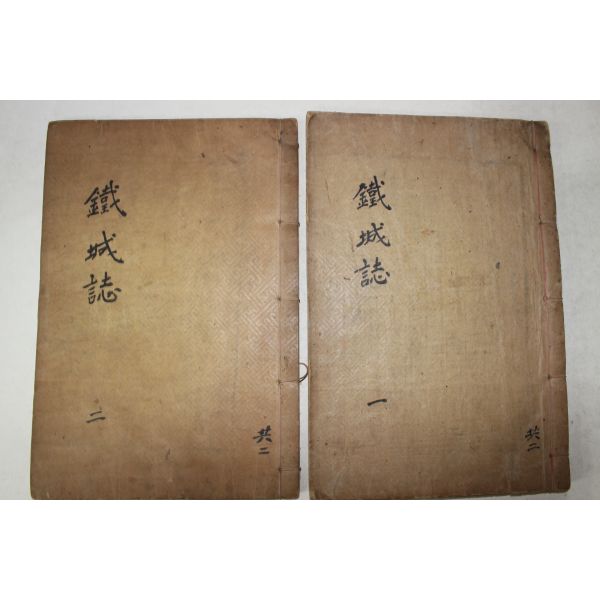 鐵城誌
一
共二
鐵城誌
二
共二